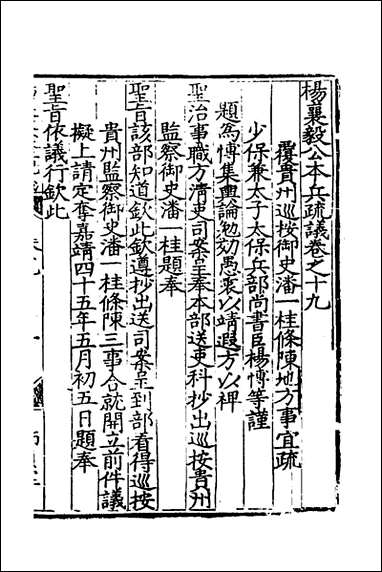 楊襄毅公本兵疏議卷之十九
覆貴州巡按御史潘一桂條陳地方事宜疏
少保兼太子太保兵部尚書臣楊博等謹
題為博集輿論勉効愚衷以靖遐方以禆
聖治事職方清吏司案呈奉本部送吏科抄出巡按貴州
監察御史潘一桂題奉
聖旨該部知道欽此欽遵抄出送司案呈到部看得巡按
貴州監察御史潘一桂條陳三事合就開立前件議
擬上請定奪嘉靖四十五年五月初五日題奉
聖旨依議行欽此